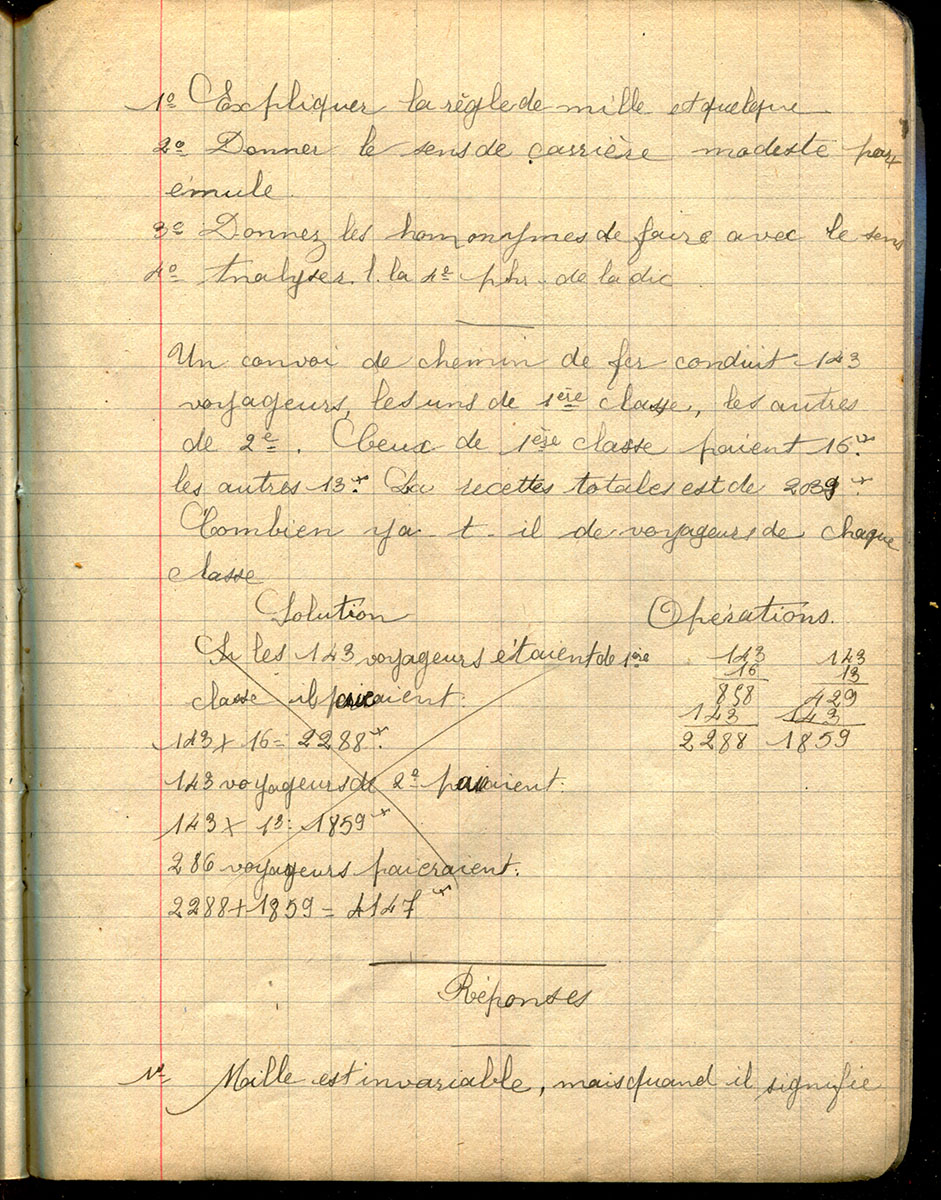 1º Expliquer la règle de mille et quelque
2º Donner le sens de carrière modeste par
émule.
3º Donnez les homonymes de faire avec le sens
4º Analyser. l. la 1e phr. de la dic
Un convoi de chemin de fer conduit 143
voyageurs, les uns de 1ère classe, les autres
de 2e. Ceux de 1ère classe paient 16fr.
les autres 13fr. La recettes totales est de 2039fr
Combien y a-t-il de voyageurs de chaque
classe
Solution
Si les 143 voyageurs étaient de 1ère
classe ils paieraient:
143 x 16 = 2288fr.
143 voyageurs de 2e paieraient:
143 x 13 = 1859fr
286 voyageurs paieraient:
2288 + 1859 = 4147fr
Opérations.
143 143
16 13
858 429
143 143
2288 1859
Réponses
1º Mille est invariable, mais quand il signifie